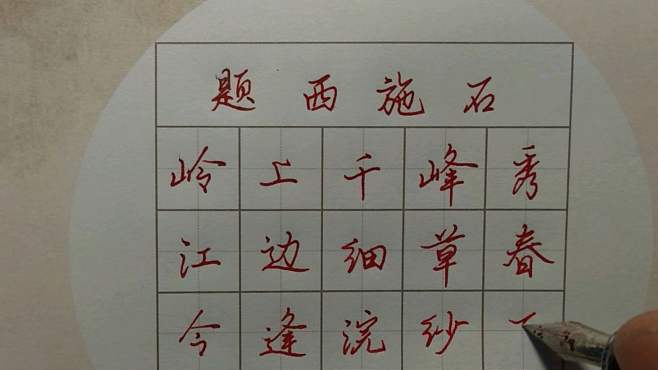 题西施石
岭上千峰秀
江边细草春
今逢浣纱